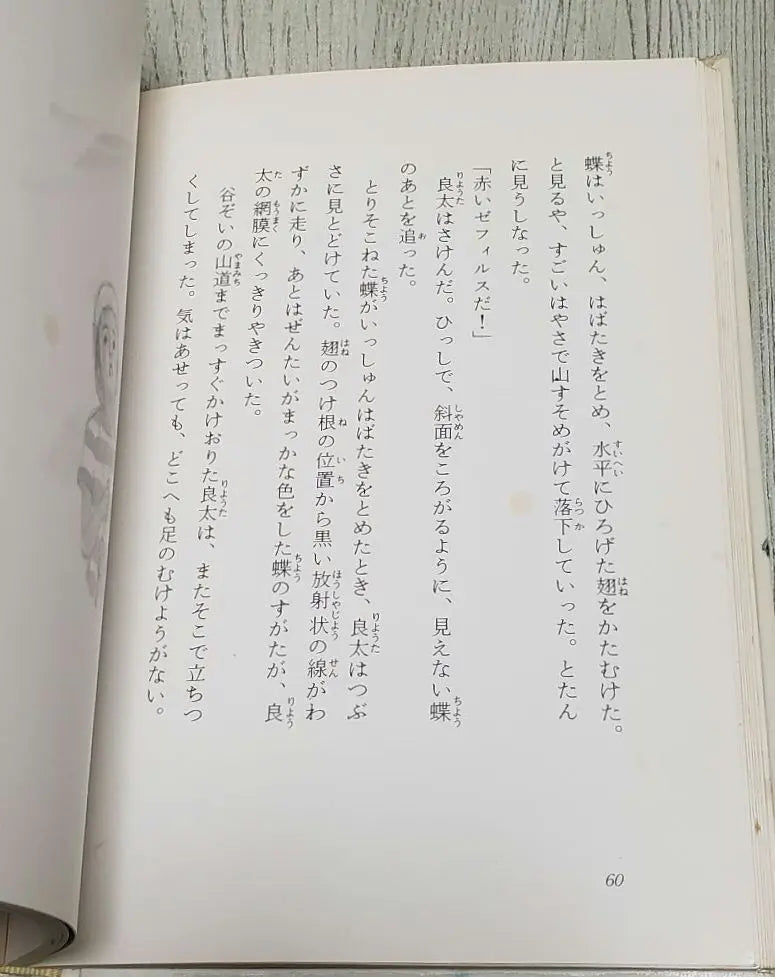 蝶はいっしゅん、はばたきをとめ、水平にひろげた翅をかたむけた。
と見るや、すごいはやさで山すそめがけて落下していった。とたん
に見うしなった。
「赤いゼフィルスだ！」
良太はさけんだ。ひっしで、斜面をころがるように、見えない蝶
のあとを追った。
とりそこねた蝶がいっしゅんはばたきをとめたとき、良太はつぶ
さに見とどけていた。翅のつけ根の位置から黒い放射状の線がわ
ずかに走り、あとはぜんたいがまっかな色をした蝶のすがたが、良
太の網膜にくっきりやきついた。
谷ぞいの山道までまっすぐかけおりた良太は、またそこで立ちつ
くしてしまった。気はあせっても、どこへも足のむけようがない。
60